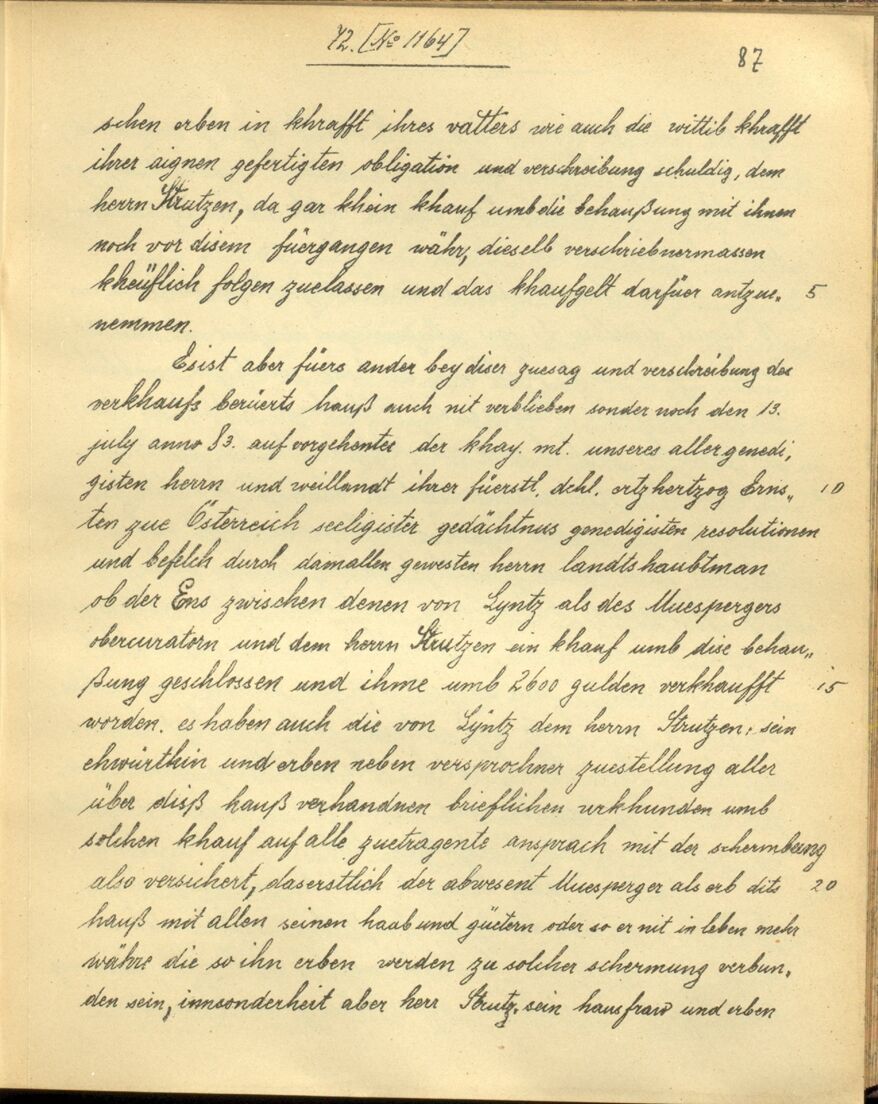 72. [No 1164]
87
schen erben in khrafft ihres vatters wie auch die wittib khrafft
ihrer aignen gefertigten obligation und verschreibung schuldig, dem
herrn Strutzen, da gar khein khauf umb die behaußung mit ihnen
noch vor disem füergangen währ, dieselb verschriebnermassen
kheüflich folgen zuelassen und das khaufgelt darfüer antzue„ 5
nemmen.
Es ist aber fürs ander bey diser zuesag und verschreibung des
verkhaufs berüerts hauß auch nit verblieben sonder noch den 13.
july anno 83. auf vorgehentes der khay. mt. unseres allergenedi„
gisten herrn und weillandt ihrer füerstl. dchl. ertzhertzog Erns„ 10
ten zue Österreich seeligister gedächtnus genedigisten resolutionen
und befelch durch damallen gewesten herrn landtshaubtman
ob der Ens zwischen denen von Lyntz als des Muespergers
obercuratorn und dem herrn Strutzen ein khauf umb dise behau„
ßung geschlossen und ihme umb 2600 gulden verkhaufft 15
worden. es haben auch die von Lÿntz dem herrn Strutzen, sein
ehwürthin und erben neben versprochner zuestellung aller
über disß hauß verhandnen brieflichen urkhunden umb
solchen khauf auf alle zuetragente ansprach mit der schermbung
also versichert, das erstlich der abwesent Muesperger als erb dits 20
hauß mit allen seinen haab und güetern oder so er nit in leben mehr
währe die so ihn erben werden zu solcher schermung verbun„
den sein, innsonderheit aber herr Strutz, sein hausfraw und erben